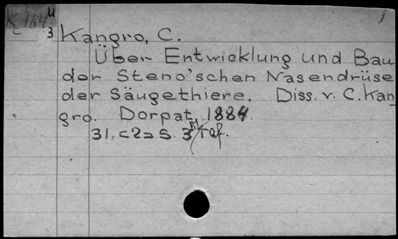 Kangro, C.
Über Entwicklung und Bau
der Steno'schen Nasendrüse
der Säugethiere. Diss. v. C. Kan
gro. Dorpat, 1884.
31, <2> S. 3 Taf.